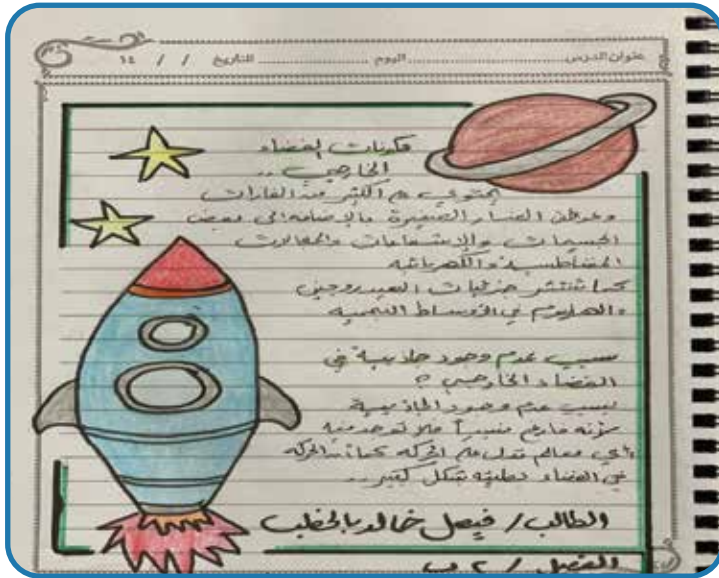 عنوان الدرس ........ اليوم ........ التاريخ / / ١٤
مكونات الفضاء
الخارجي ..
يحتوي على الكثير من الغازات
وعوالق الغبار الصغيرة بالإضافة إلى بعض
الجسيمات والإشعاعات والمجالات
المغناطيسية والكهربائية
كما تنتشر جزئيات الهيدروجين
والهليوم في الأوساط النجمية
سبب عدم وجود جاذبية في
الفضاء الخارجي ؟
بسبب عدم وجود الجاذبية
فلا توجد فيه
أي معالم تدل على الحركة كما أن الحركة
في الفضاء بطيئة بشكل كبير ..
الطالب / فيصل خالد بالخطب
الفصل / ٢ ب